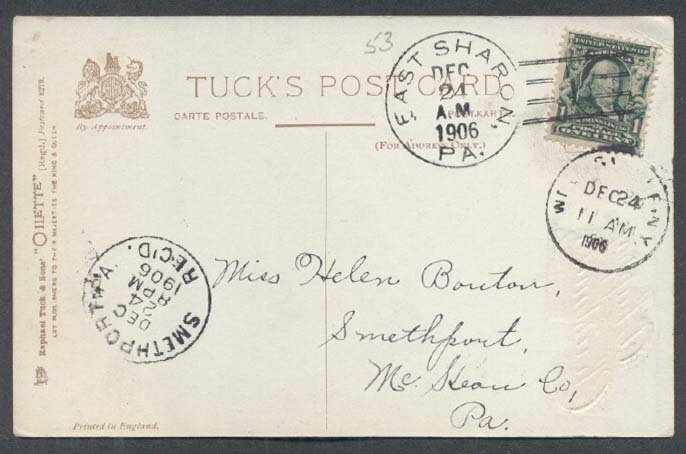 53
By Appointment.
TUCK'S POST CARD
CARTE POSTALE.
(FOR ADDRESS ONLY.)
EAST SHARON,
DEC
24
A.M.
1906
PA.
DEC 24
11 AM
1906
Raphael Tuck & Sons' "OILETTE" [Regd.] Postcard 6279.
ART PUBLISHERS TO THEIR MAJESTIES THE KING & QUEEN
SMETHPORT PA.
DEC
24
8 PM
1906
REC'D.
Miss Helen Bouton,
Smethport,
Mc Kean Co,
Pa.
Printed in England.